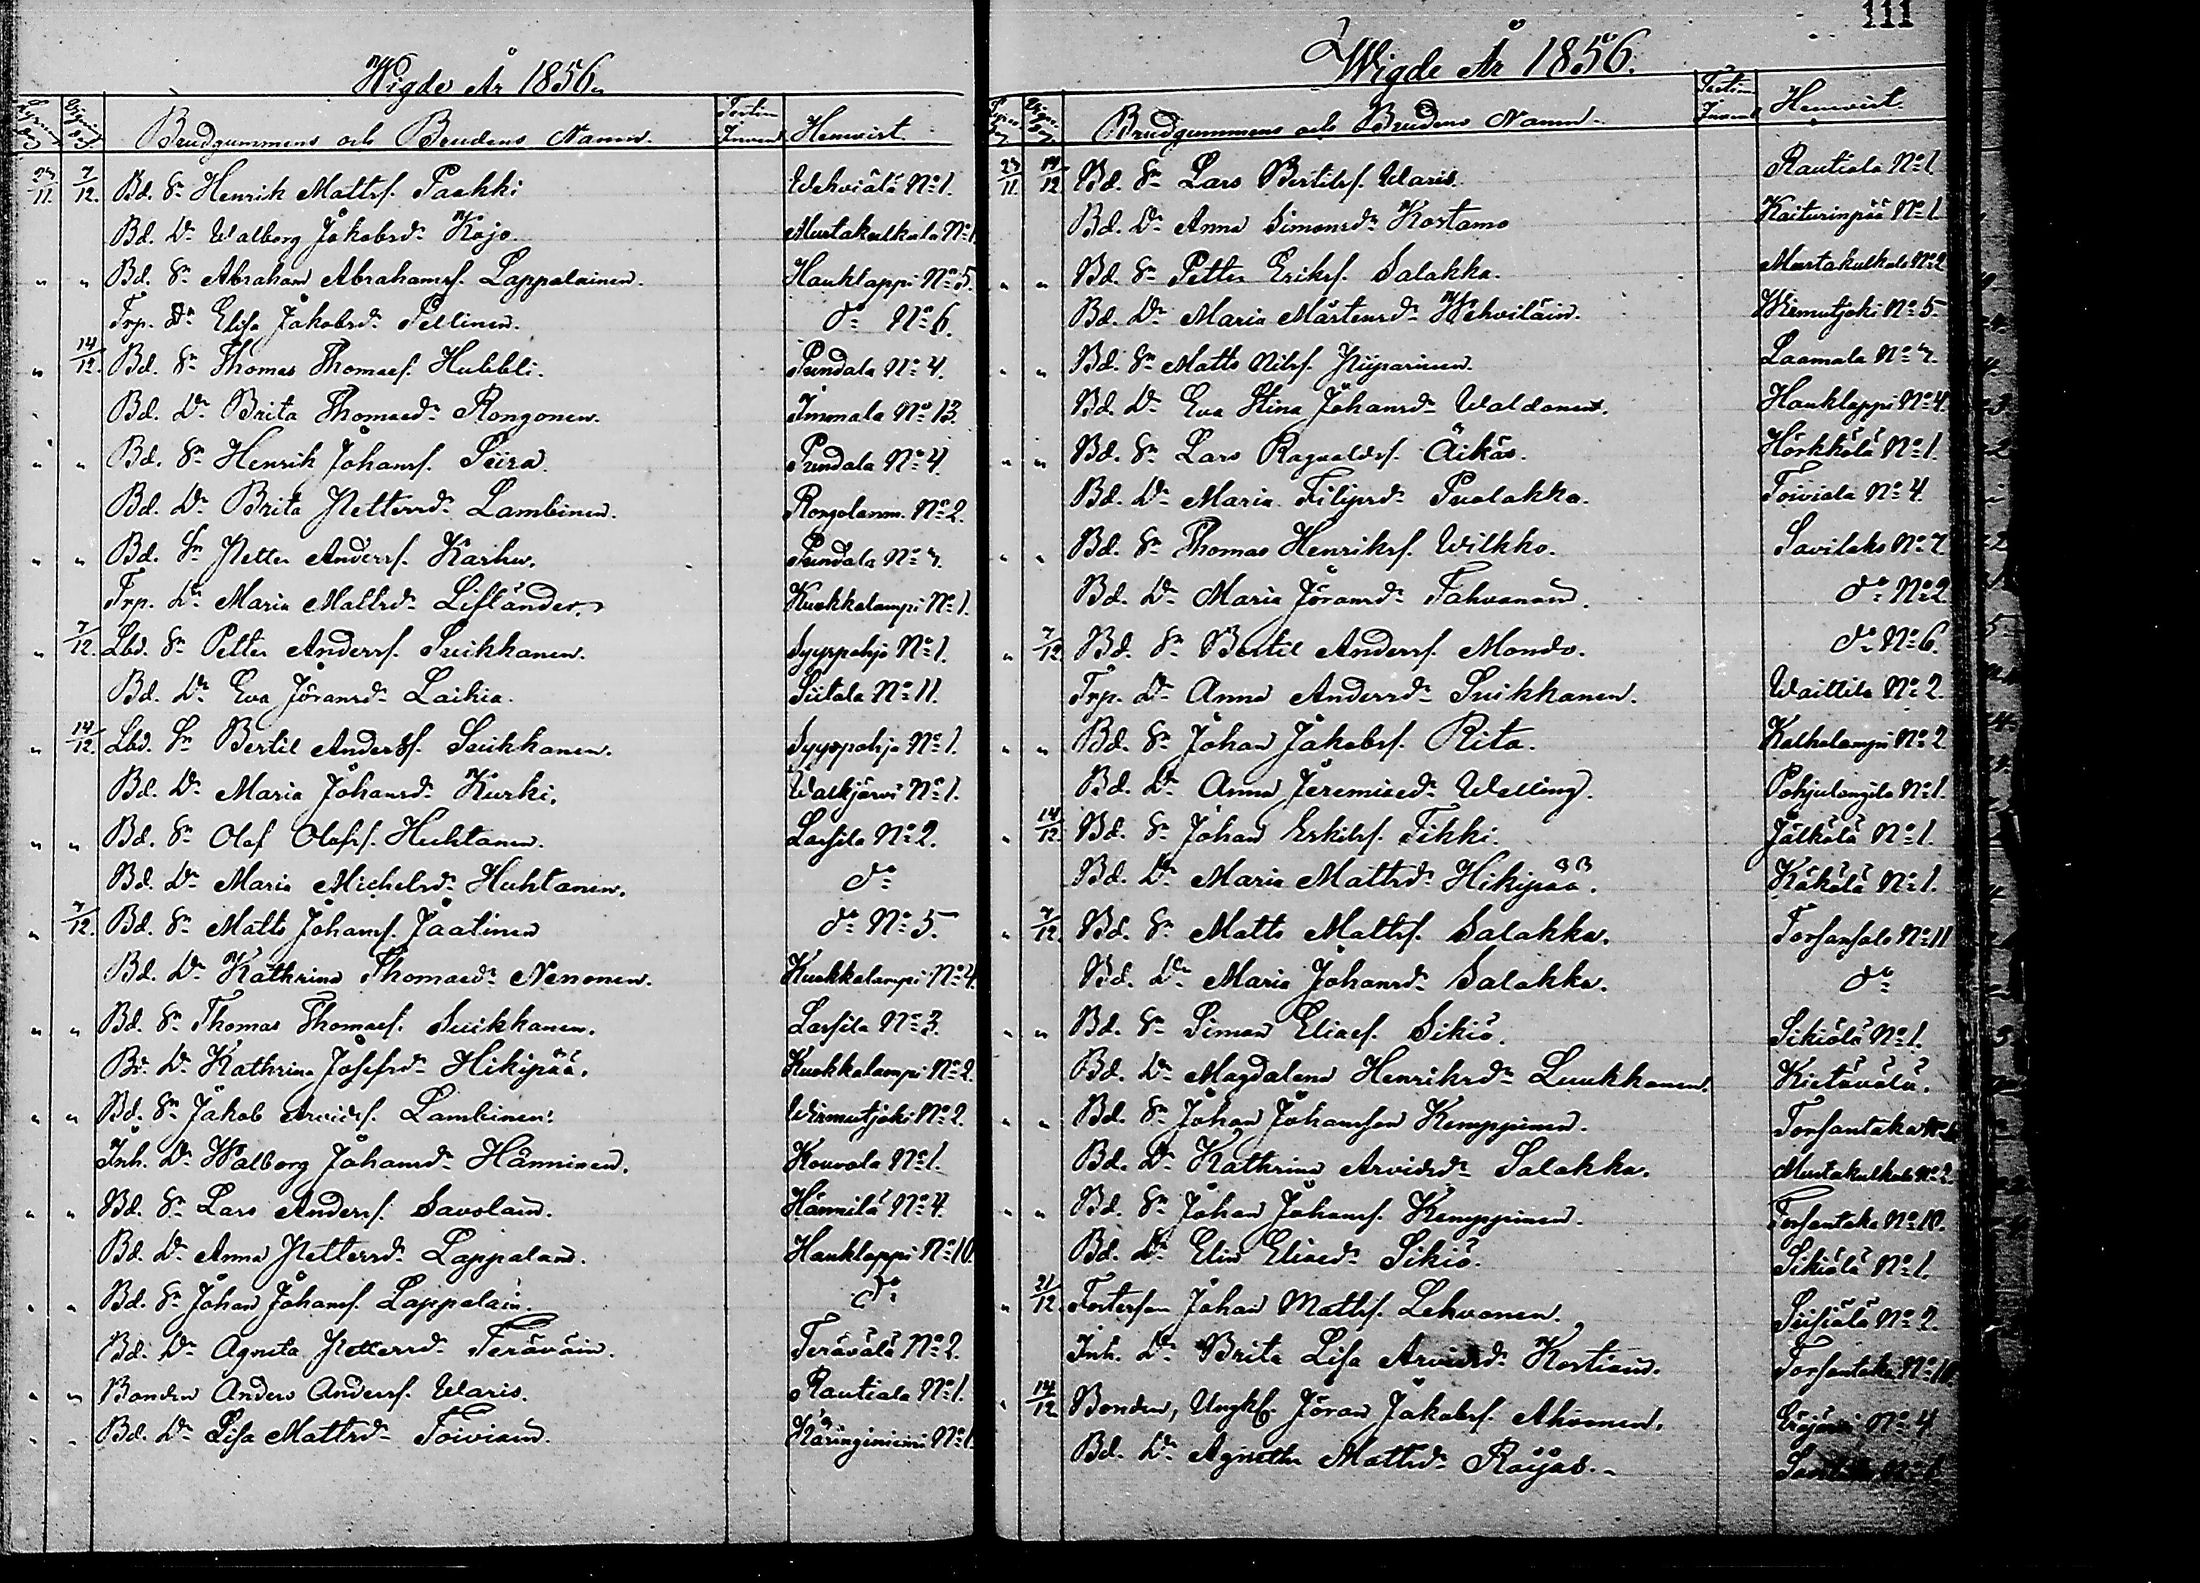 111
Wigde År 1856.
Brudgummens och Brudens Namn. Hemvist
23/11. 7/12. Bd. Sn Henrik Mattsf. Paakki Wehviälä No 1.
Bd. Dr Walborg Jakobsdr Kojo. Mustakulkula No 1
" " Bd. Sn Abraham Abrahamsf. Lappalainen. Hauklappi No 5.
Trp. Dr Elisa Jakobsdr Pellinen. do No 6.
" 14/12. Bd. Sn Thomas Thomasf. Hubbli. Pundala No 4.
Bd. Dr Brita Thomasdr Rongonen. Immala No 13.
" " Bd. Sn Henrik Johansf. Piira. Pundala No 4.
Bd. Dr Brita Pettersdr Lambinen. Rongolamm. No 2.
" " Bd. Sn Petter Andersf. Karhu. Pundala No
Trp. Dr Maria Mattsdr Lifländer. Kuokkalampi No 1.
" 7/12. Lbd. Sn Petter Andersf. Suikkanen. Syyspohja No 1.
Bd. Dr Eva Jöransdr Laikia. Siitala No 11.
" 14/12. Lbd. Sn Bertil Andersf. Suikkanen. Syyspohja No 1.
Bd. Dr Maria Johansdr Kurki. Walkjärvi No 1.
" " Bd. Sn Olof Olofsf. Huhtanen. Lasfila No 2.
Bd. Dr Maria Michelsdr Huhtanen. do
" 7/12. Bd. Sn Matts Johansf. Jaatinen do No 5.
Bd. Dr Kathrina Thomasdr Nenonen. Kuokkalampi No 4.
" " Bd. Sn Thomas Thomasf. Suikkanen. Lasfila No 3.
Bd. Dr Kathrina Josefsdr Hikipää. Kuokkalampi No 2.
" " Bd. Sn Jakob Arvidsf. Lambinen. Wirmutjoki No 2.
Inh. Dr Walborg Johansdr Hänninen. Kouvola No 1.
" " Bd. Sn Lars Andersf. Savolain. Hännilä No 4.
Bd. Dr Anna Pettersdr Lappalain. Hauklappi No 10
" " Bd. Sn Johan Johansf. Lappalain. do
Bd. Dr Agneta Pettersdr Teräväin. Terävälä No 2.
" " Bonden Anders Andersf. Waris. Rautiala No 1.
" " Bd. Dr Lisa Mattsdr Toiviain. Käringiniemi No 1
Wigde År 1856.
Brudgummens och Brudens Namn. Hemvist
23/11. 14/12 Bd. Sn Lars Bertilsf. Waris. Rautiala No 1
Bd. Dr Anna Simonsdr Kostamo Kaiturinpää No 1.
" " Bd. Sn Petter Eriksf. Salakka. Mustakulkula No 2
Bd. Dr Maria Mårtensdr Wehviläin. Wirmutjoki No 5.
" " Bd. Sn Matts Nilsf. Piiparinen. Laamala No
Bd. Dr Eva Stina Johansdr Waldonen. Hauklappi No 4.
" " Bd. Sn Lars Ragvaldsf. Äikäs. Hörkkölä No 1.
Bd. Dr Maria Filipsdr Puolakka. Toiviala No 4.
" " Bd. Sn Thomas Henriksf. Wilkko. Savilaks No
Bd. Dr Maria Jöransdr Tahvanain. do No 2
" 7/12 Bd. Sn Bertil Andersf. Mondo. do No 6.
Trp. Dr Anna Andersdr Suikkanen. Waittila No 2.
" " Bd. Sn Johan Jakobsf. Rita. Kalholampi No 2.
Bd. Dr Anna Jeremiaedr Welling. Pohjulangila No 1.
" 14/12 Bd. Sn Johan Eskilsf. Tikki. Jälkölä No 1.
Bd. Dr Maria Mattsdr Hikipää. Käkölä No 1.
" 7/12. Bd. Sn Matts Mattsf. Salakka. Torfansalo No 11
Bd. Dr Maria Johansdr Salakka. do
" " Bd. Sn Simon Eliaef. Sikiö. Sikiölä No 1.
Bd. Dr Magdalena Henriksdr Luukkanen. Kietävälä.
" " Bd. Sn Johan Johansson Kemppinen. Torfantaka
Bd. Dr Kathrina Arvidsdr Salakka. Mustakulkula No 2
" " Bd. Sn Johan Johansf. Kemppinen. Torfantaka No 10.
Bd. Dr Elin Eliaedr Sikiö. Sikiölä No 1.
" 21/12. Fostersson Johan Mattsf. Lehvonen. No 2.
Inh. Dr Brita Lisa Arvidsdr Kostiain. Torfantaka No
" 14/12 Bonden, Ungkl. Jöran Jakobsf. Ahvonen. No 4
Bd. Dr Agnetha Mattsdr Räijas.